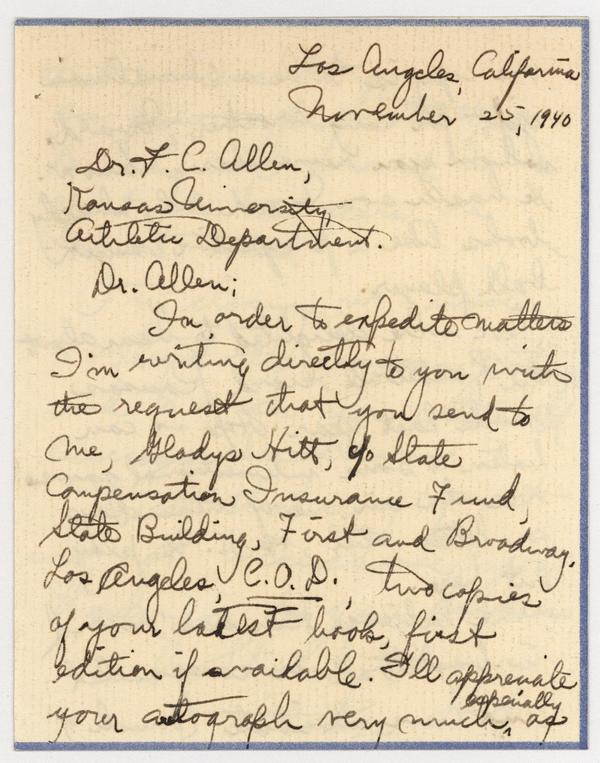 Los Angeles, California
November 25, 1940
Dr. F. C. Allen,
Kansas University,
Athletic Department.
Dr. Allen;
In order to expedite matters
I'm writing directly to you with
the request that you send to
me, Gladys Hitt, c/o State
Compensation Insurance Fund,
State Building, First and Broadway,
Los Angeles, C.O.D., two copies
of your latest book, first
edition if available. I'll appreciate
especially
your autograph very much, as